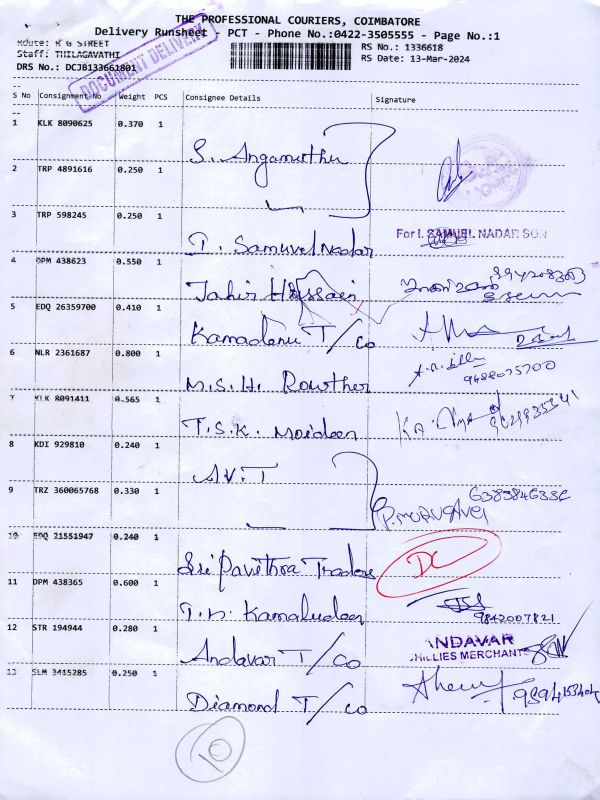 THE PROFESSIONAL COURIERS, COIMBATORE
Delivery Runsheet - PCT - Phone No.:0422-3505555 - Page No.:1
Route: K G STREET
RS No.: 1336618
Staff: THILAGAVATHI
RS Date: 13-Mar-2024
DRS No.: DCJB133661801
DOCUMENT DELIVERY
S No Consignment No Weight PCS Consignee Details Signature
1 KLK 8090625 0.370 1 S. Angamuthu
2 TRP 4891616 0.250 1
3 TRP 598245 0.250 1 I. Samuvel Nadar For I. SAMUEL NADAR SON
4 DPM 438623 0.550 1 Tahir Hussain
5 EDQ 26359700 0.410 1 Kamadenu T/Co
6 NLR 2361687 0.800 1 M.S.H. Rowther 9488075700
7 KLK 8091411 0.565 1 T.S.K. Moideen
8 KDI 929810 0.240 1 A.V.T
9 TRZ 360065768 0.330 1 P.MURUGAVEL
10 EDQ 21551947 0.240 1 Sri Pavithra Traders DC
11 DPM 438365 0.600 1 T.N. Kamaludeen 9842007821
12 STR 194944 0.280 1 Andavar T/Co ANDAVAR
CHILLIES MERCHANT
13 SLM 3415285 0.250 1 Diamond T/Co
10